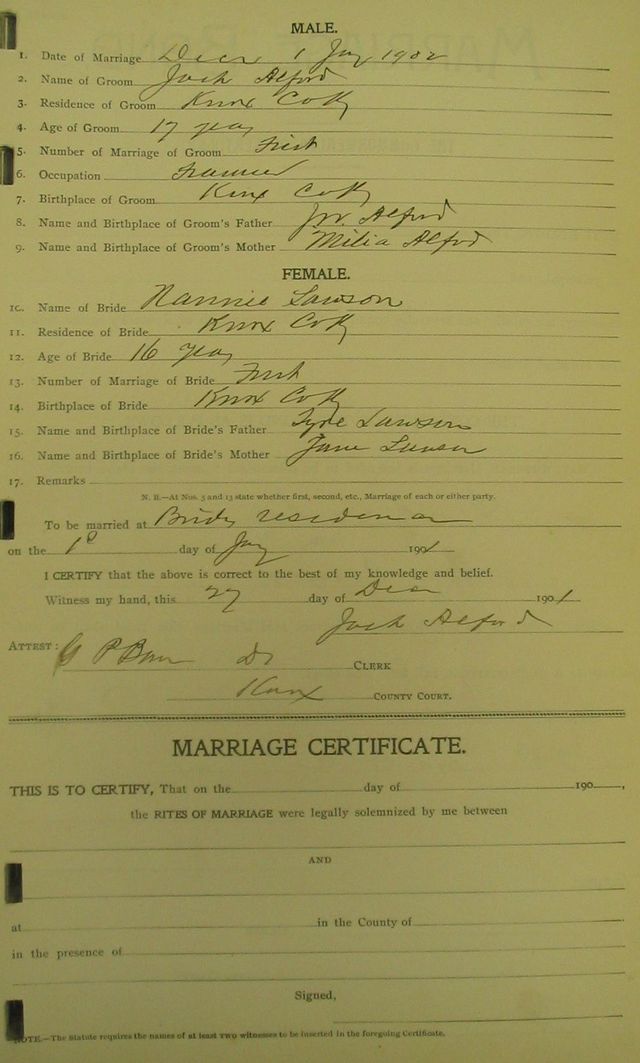 MALE.
1. Date of Marriage Decr 1 Jay 1902
2. Name of Groom Jack Alford
3. Residence of Groom Knox Co Ky
4. Age of Groom 17 years
5. Number of Marriage of Groom First
6. Occupation Farmer
7. Birthplace of Groom Knox Co Ky
8. Name and Birthplace of Groom's Father Alford
9. Name and Birthplace of Groom's Mother Milia Alford
FEMALE.
10. Name of Bride Nannie Lawson
11. Residence of Bride Knox Co Ky
12. Age of Bride 16 years
13. Number of Marriage of Bride First
14. Birthplace of Bride Knox Co Ky
15. Name and Birthplace of Bride's Father Lawson
16. Name and Birthplace of Bride's Mother Jane Lawson
17. Remarks
N. B.—At Nos. 5 and 13 state whether first, second, etc., Marriage of each or either party.
To be married at Brides residence
on the 1 day of Jay 1901
I CERTIFY that the above is correct to the best of my knowledge and belief.
Witness my hand, this 27 day of Decr 1901
Jack Alford
ATTEST: G P CLERK
Knox COUNTY COURT.
MARRIAGE CERTIFICATE.
THIS IS TO CERTIFY, That on the day of 190 ,
the RITES OF MARRIAGE were legally solemnized by me between
AND
at in the County of
in the presence of
Signed,
NOTE.—The Statute requires the names of at least TWO witnesses to be inserted in the foregoing Certificate.